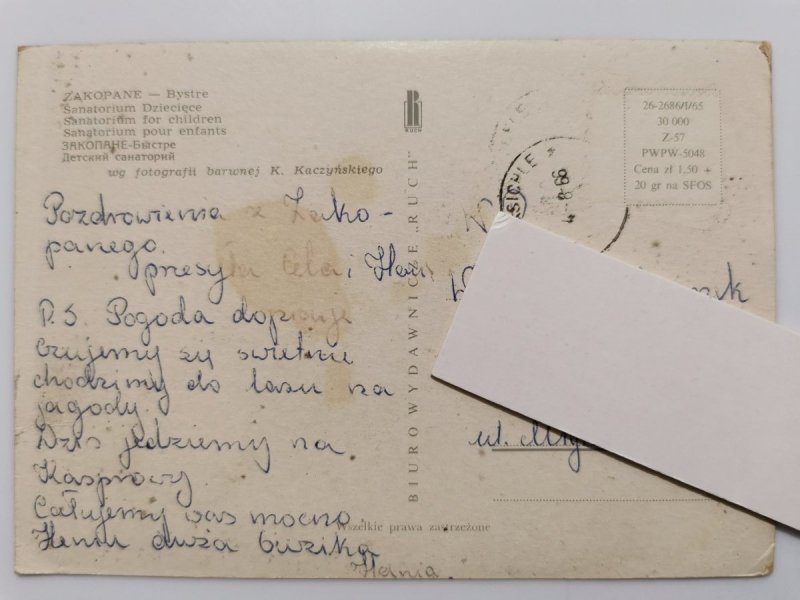 ZAKOPANE — Bystre
Sanatorium Dziecięce
Sanatorium for children
Sanatorium pour enfants
ЗАКОПАНЕ-Быстре
Детский санаторий
wg fotografii barwnej K. Kaczyńskiego
Pozdrowienia z Zako-
panego
przesyła Ela i
P.S. Pogoda dopisuje
Czujemy się świetnie
chodzimy do lasu na
jagody.
Dziś jedziemy na
Kasprowy.
Całujemy was mocno
duża buzika
Hania.
R
RUCH
BIURO WYDAWNICZE „RUCH"
SIERPIE
26-2686/I/65
30 000
Z-57
PWPW-5048
Cena zł 1,50 +
20 gr na SFOS
ul.
Wszelkie prawa zastrzeżone